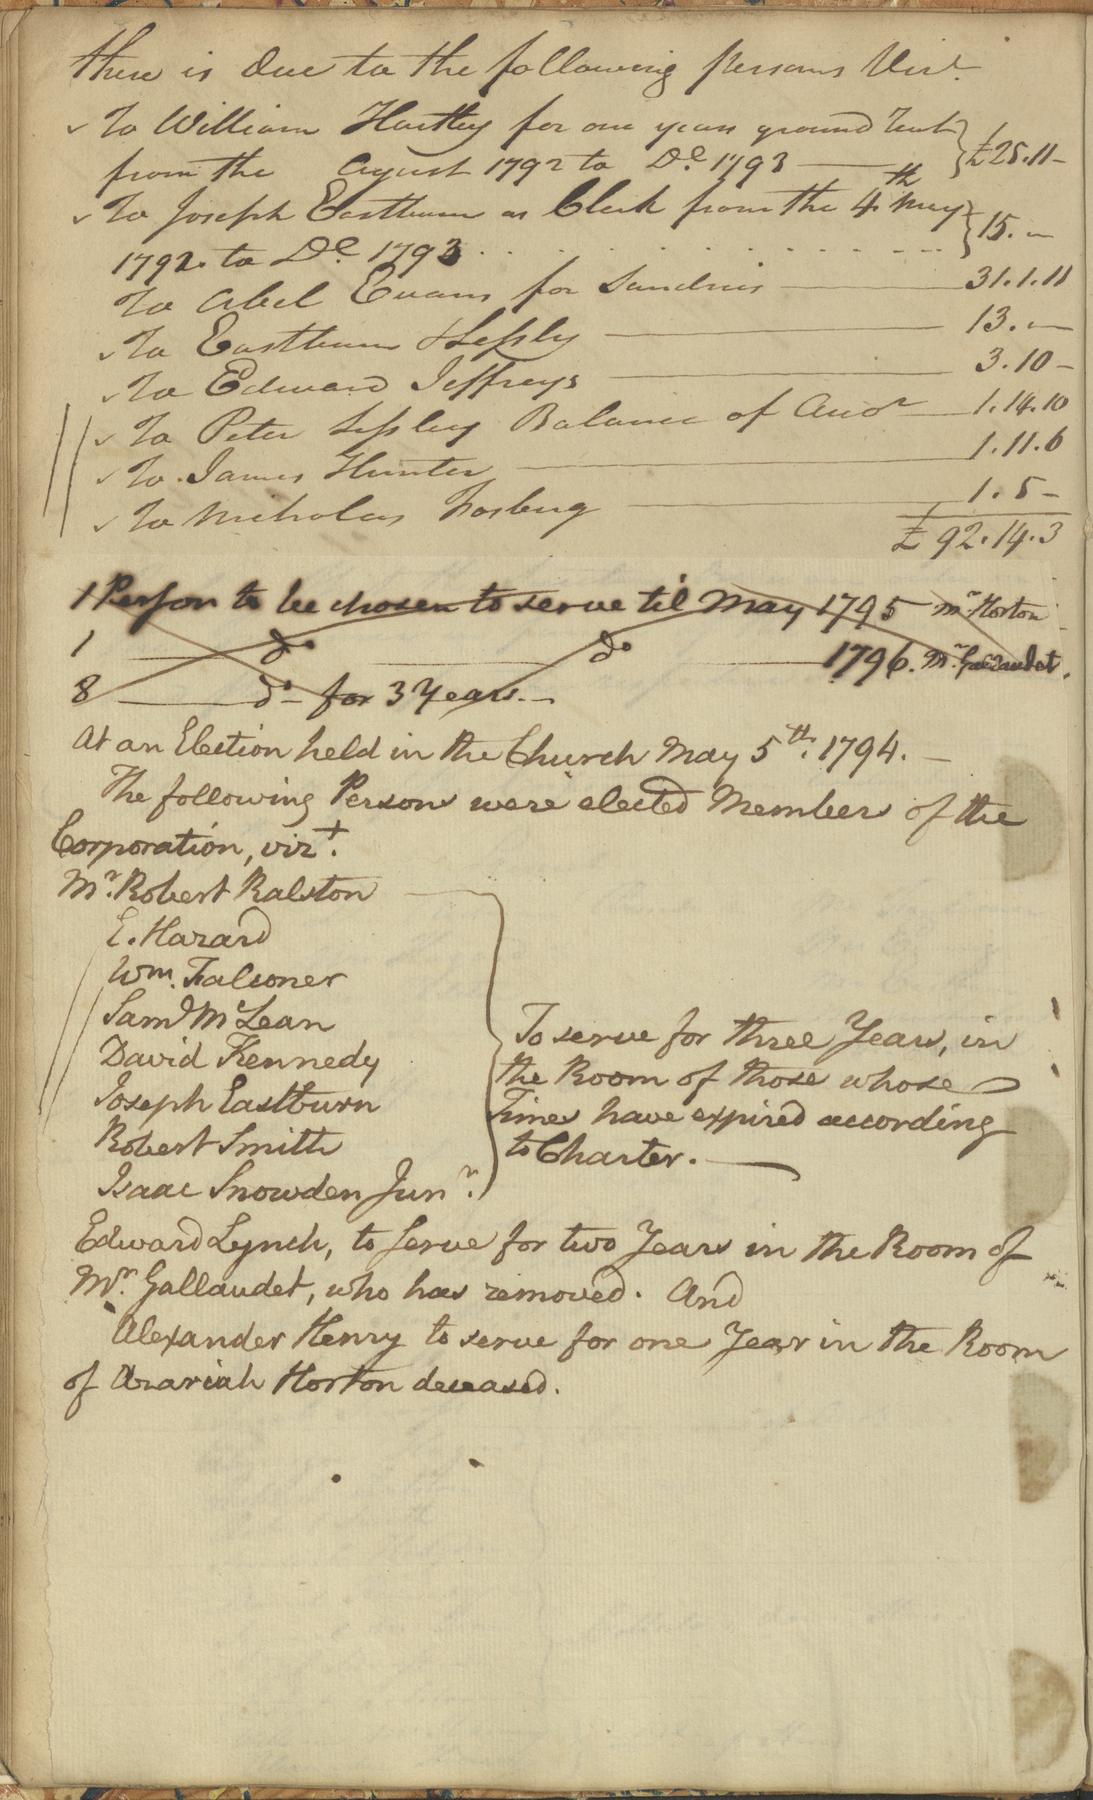 there is due to the following persons Vizt.
To William Hartley for one years ground Rent
from the August 1792 to Do. 1793 — £25.11–
To Joseph Eastburn as Clerk from the 4th. May
1792. to Do. 1793 . . . . 15. –
To Abel Evans for Sundries — 31.1.11
To Eastburn & Lessly — 13. –
To Edward Jeffreys — 3.10 –
To Peter Lessley Balance of Accot — 1.14.10
To James Hunter — 1.11.6
To Nicholas Vosburg — 1.5 –
£ 92.14.3
1 Person to be chosen to serve til May 1795 Mr. Horton
1 — do. — do. — 1796. Mr. Gallaudet.
8 — do – for 3 Years. –
At an Election held in the Church May 5th. 1794. –
The following Persons were elected Members of the
Corporation, vizt.
Mr. Robert Ralston
E. Hazard
Wm. Falconer
Saml McLean
David Kennedy
Joseph Eastburn
Robert Smith
Isaac Snowden Junr.
To serve for three Years, in
the Room of those whose
Times have expired according
to Charter. —
Edward Lynch, to serve for two Years in the Room of
Mr. Gallaudet, who has removed. And
Alexander Henry to serve for one Year in the Room
of Azariah Horton deceased.